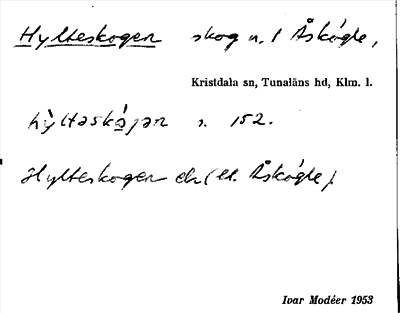 Hylteskogen skog n. l Åskógle,
Kristdala sn, Tunaläns hd, Klm. l.
hỳltəskò̲jən s. 152.
Hylteskogen ek (ll. Åskógle)
Ivar Modéer 1953